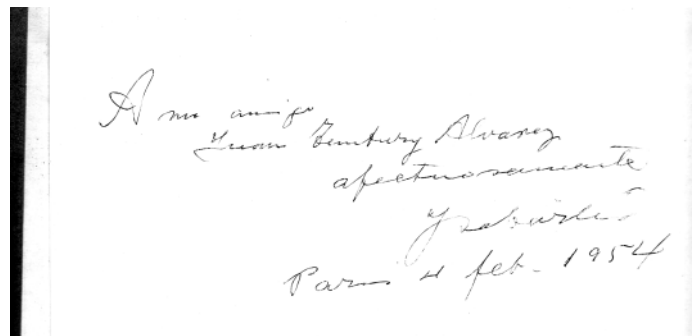 A mi amigo
Juan Temboury Alvarez
afectuosamente
Paris 4 feb. 1954